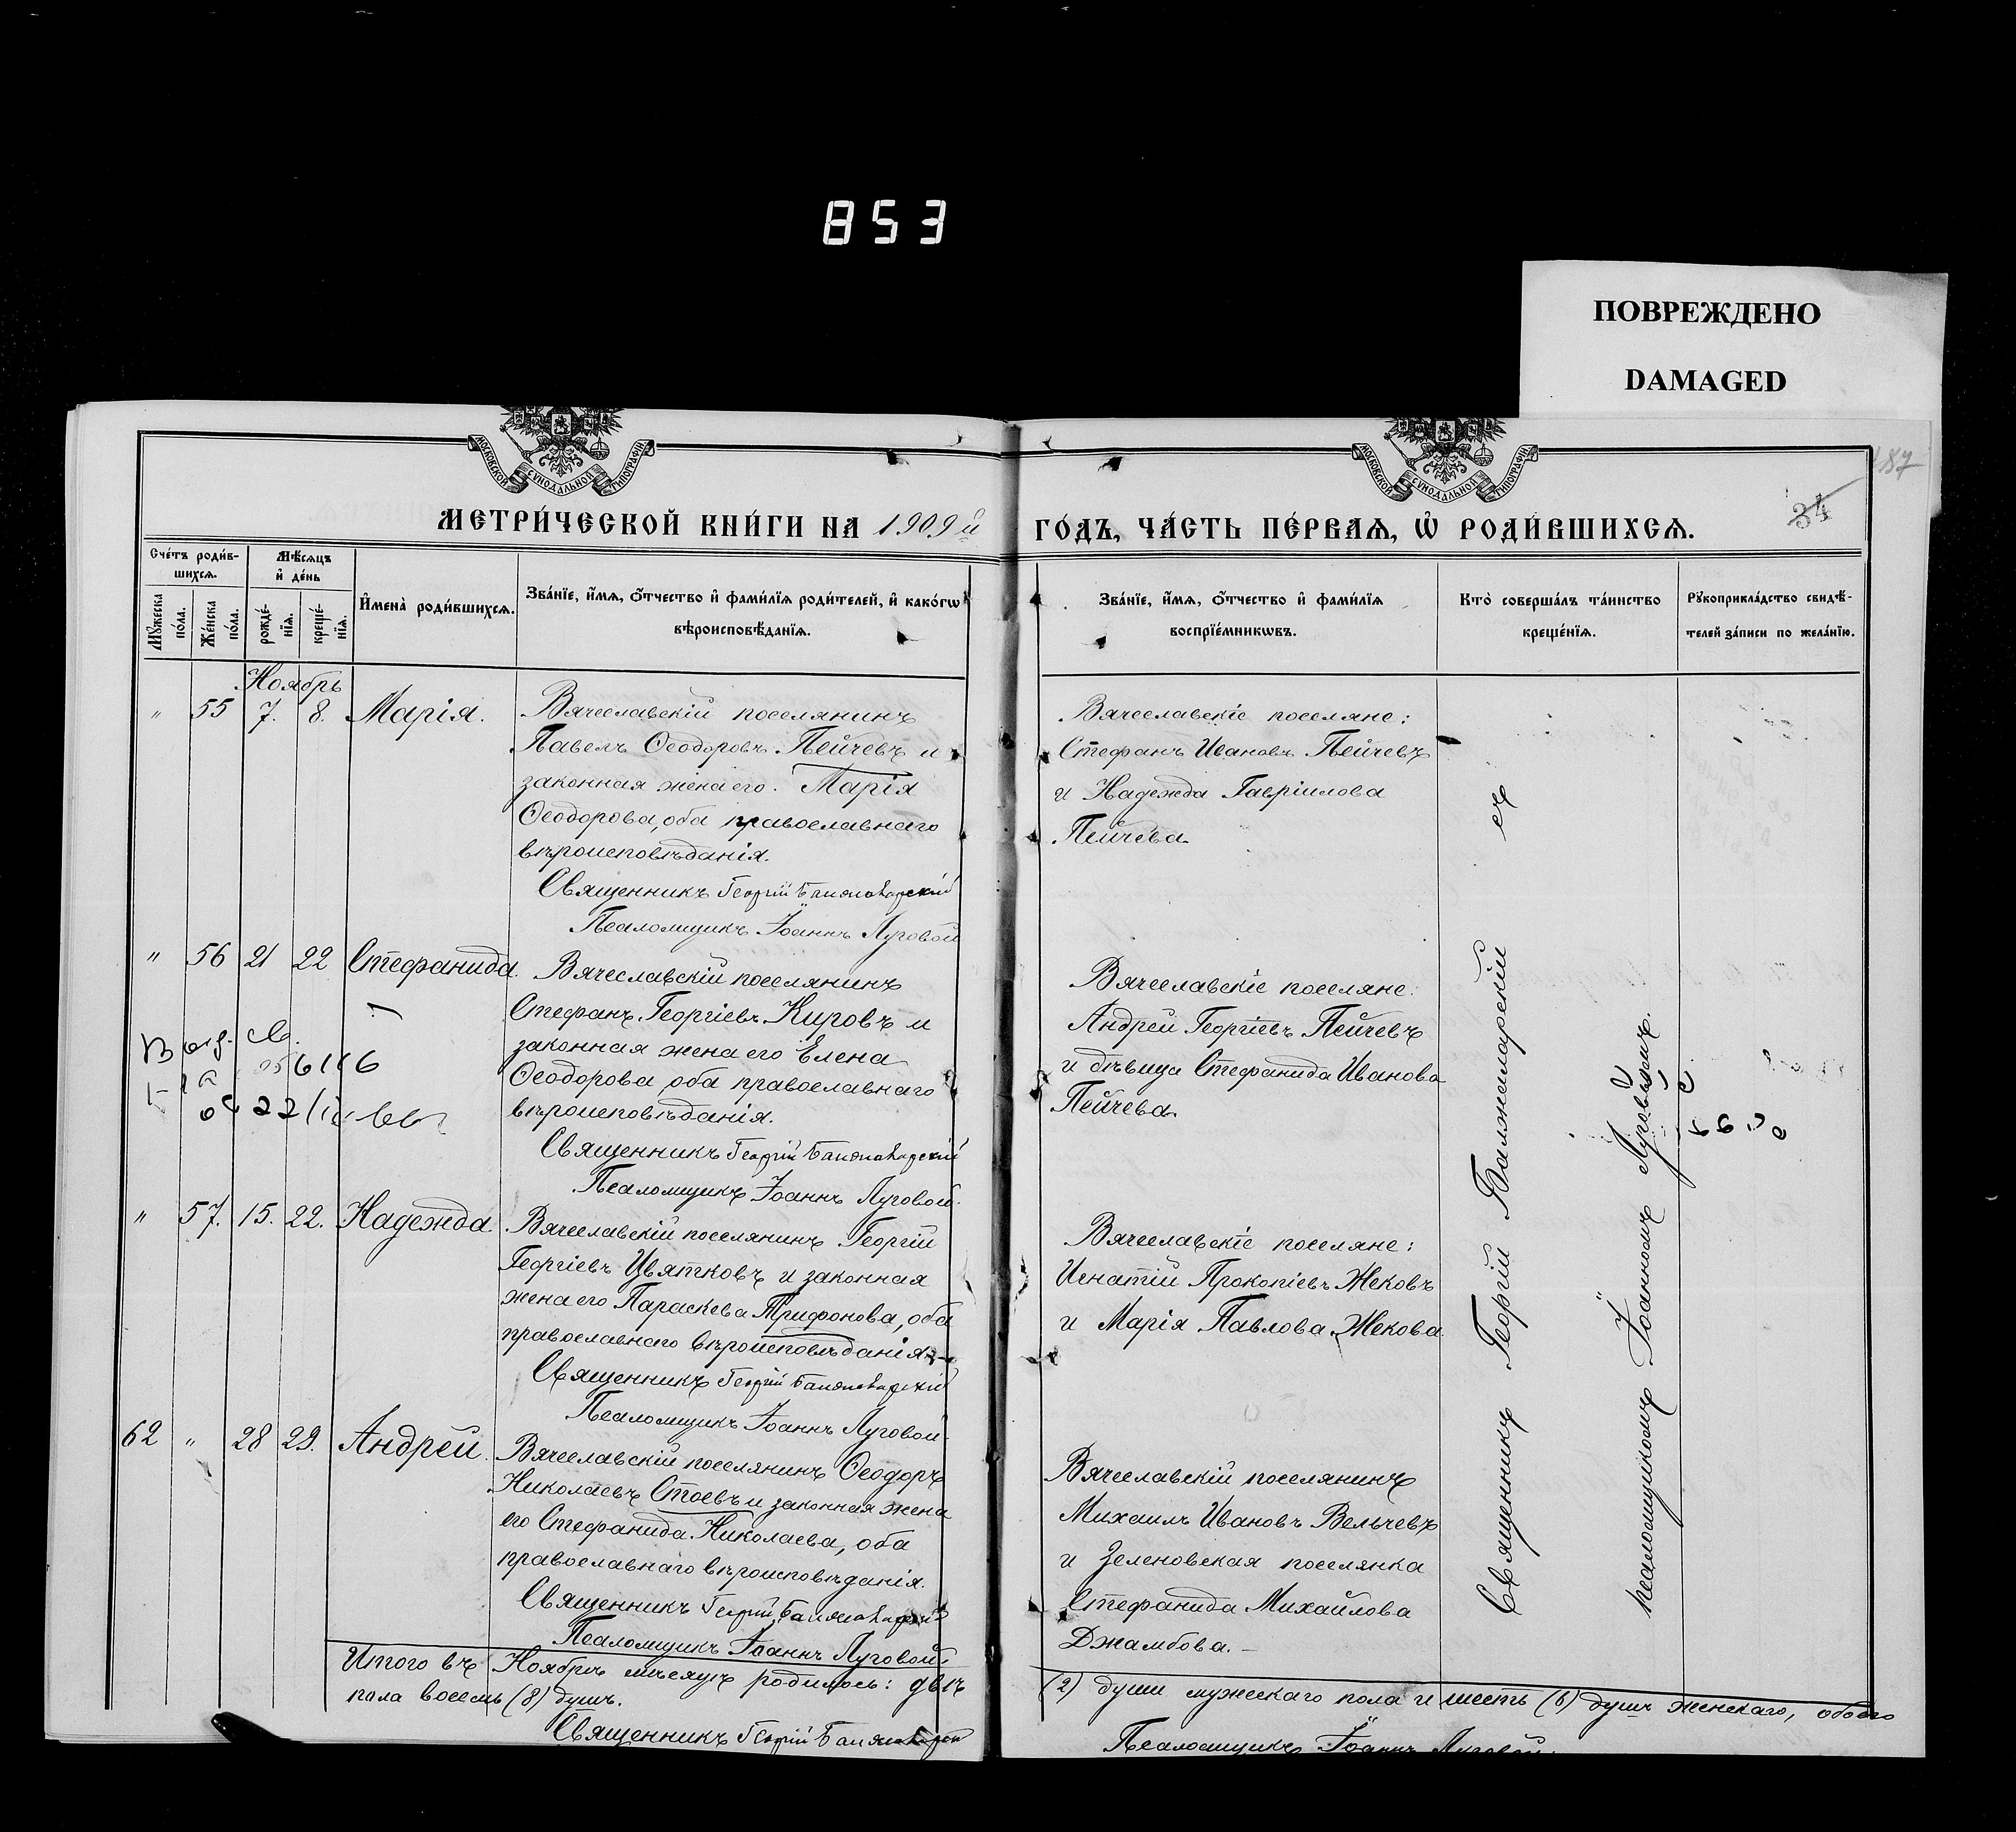 853
ПОВРЕЖДЕНО
DAMAGED
МОСКОВСКОЙ СѴНОДАЛЬНОЙ ТИПОГРАФІИ
МОСКОВСКОЙ СѴНОДАЛЬНОЙ ТИПОГРАФІИ
187
34
МЕТРИ́ЧЕСКОЙ КНИ́ГИ НА 1909й ГО́ДЪ, ЧА́СТЬ ПЕ́РВАѦ, Ѡ҆ РОДИ́ВШИХСѦ.
Сче́тъ роди́в-
шихсѧ.
Мѣ́сѧцъ
и҆ де́нь
Мꙋ́жеска
по́ла.
Же́нска
по́ла.
рожде́-
нїѧ.
креще́-
нїѧ.
И҆мена̀ роди́вшихсѧ.
Зва́нїе, и҆́мѧ, ѻ҆́тчество и҆ фами́лїѧ роди́телей, и҆ како́гѡ
вѣроисповѣ́данїѧ.
Зва́нїе, и҆́мѧ, ѻ҆́тчество и҆ фами́лїѧ
воспрїе́мникѡвъ.
Кто̀ соверша́лъ та́инство
креще́нїѧ.
Рꙋкоприкла́дство свидѣ́-
телей за́писи по жела́нїю.
Ноябрь
" 55 7. 8. Марія.
Вячеславскій поселянинъ
Павелъ Ѳеодоровъ Пейчевъ и
законная жена его Марія
Ѳеодорова, оба православнаго
вѣроисповѣданія.
Священникъ Георгій Балжаларскій
Псаломщикъ Іоаннъ Луговой
Вячеславскіе поселяне:
Стефанъ Ивановъ Пейчевъ
и Надежда Гавріилова
Пейчева
" 56 21 22 Стефанида.
Вячеславскій поселянинъ
Стефанъ Георгіевъ Кировъ и
законная жена его Елена
Ѳеодорова, оба православнаго
вѣроисповѣданія.
Священникъ Георгій Балжаларскій
Псаломщикъ Іоаннъ Луговой.
Вячеславскіе поселяне:
Андрей Георгіевъ Пейчевъ
и дѣвица Стефанида Иванова
Пейчева.
" 57. 15. 22. Надежда.
Вячеславскій поселянинъ Георгій
Георгіевъ Цвятковъ и законная
жена его Параскева Трифонова, оба
православнаго вѣроисповѣданія.
Священникъ Георгій Балжаларскій
Псаломщикъ Іоаннъ Луговой
Вячеславскіе поселяне:
Игнатій Прокопіевъ Жековъ
и Марія Павлова Жекова.
62 " 28 29. Андрей.
Вячеславскій поселянинъ Ѳеодоръ
Николаевъ Стоевъ и законная жена
его Стефанида Николаева, оба
православнаго вѣроисповѣданія.
Священникъ Георгій Балжаларскій
Псаломщикъ Іоаннъ Луговой
Вячеславскій поселянинъ
Михаилъ Ивановъ Вельчевъ
и Зеленовская поселянка
Стефанида Михайлова
Джамбова.
Священникъ Георгій Балжаларскій съ
псаломщикомъ Іоанномъ Луговымъ.
Итого въ Ноябрѣ мѣсяцѣ родилось: двѣ (2) души мужескаго пола и шесть (6) душъ женскаго, обоего
пола восемь (8) душъ.
Священникъ Георгій Балжаларскій
Псаломщикъ Іоаннъ Луговой.